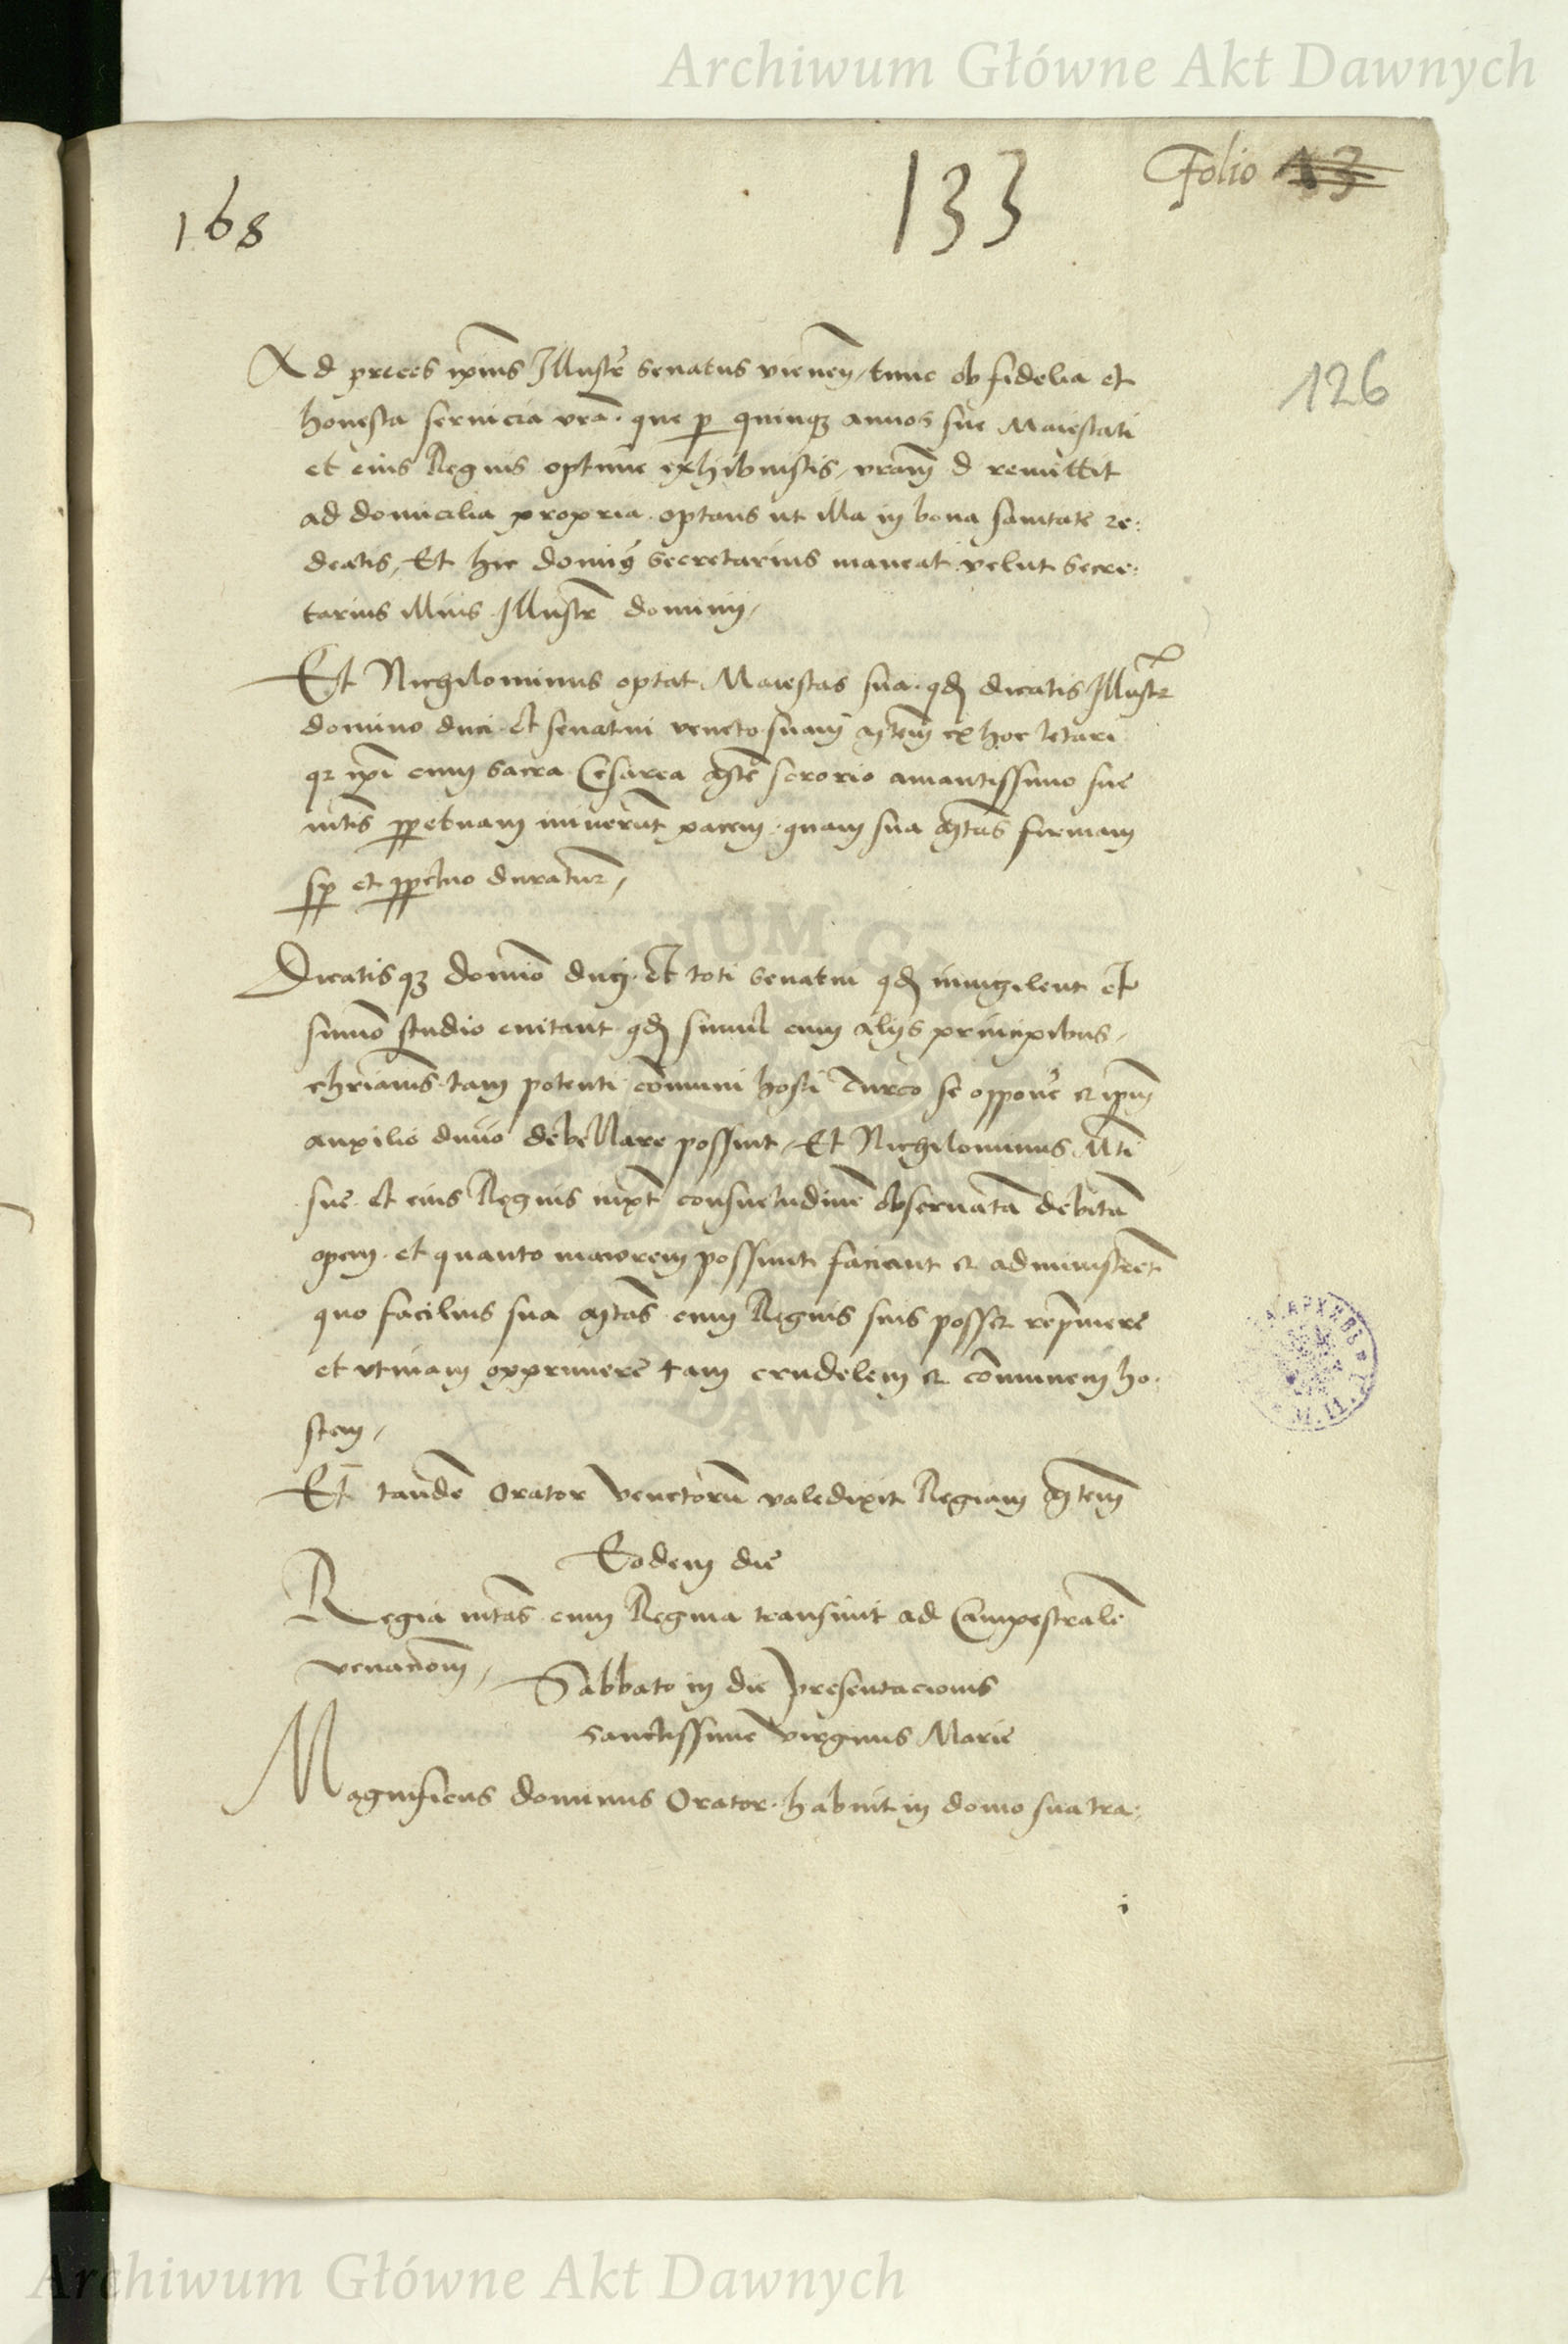 Archiwum Główne Akt Dawnych
Folio 13
133
168
126
Ad preces ipius Illustrē senatus tunc ob fidelia et
honesta seruicia vrā. que p quinqz annos sue Maiestati
et eius Regnis optime exhibuistis, vram d remittit
ad domicilia propria optans ut illa in bona sanitate re:
deatis, Et hic dominꝫ secretarius maneat velut secre:
tarius illius Illustr dominij,
Et Nichilominus optat Maiestas sua. qđ dicatis Illustr
domino duci et senatui veneto suam mtem ex hoc letari
ipi cum sacra Cesarea mte sororio amantissimo sue
mtis ppetuam iniuerūt pacem. quam sua mtas firmam
sp et ppetuo duratur,
Dicatisqz domīo duci. et toti senatui qđ inuigilent et
sūmo studio qđ simul cum alijs principibus,
chrianis tam potenti cōmuni hosti Turco se opponē et ipm
auxilio diuīo debellare possint, Et Nichilominus Mti
sue et eius Regnis iuxt consuetudinē obseruatā debitā
opem. et quanto maiorem possunt faciant et administrēt
quo facilius sua mtas cum Regnis suis posset repmere
et vtinam opprimere tam crudelem et cōmunem ho:
stem,
Et tandē Orator Venetorū valedixit Regiam mtem
Eodem die
Regia mtas cum Regina transiuit ad Campestralē
venacōem,
Sabbato in die presentacionis
sanctissime virginis Marie
Magnificus dominus Orator. habuit in domo sua tra:
i
Archiwum Główne Akt Dawnych